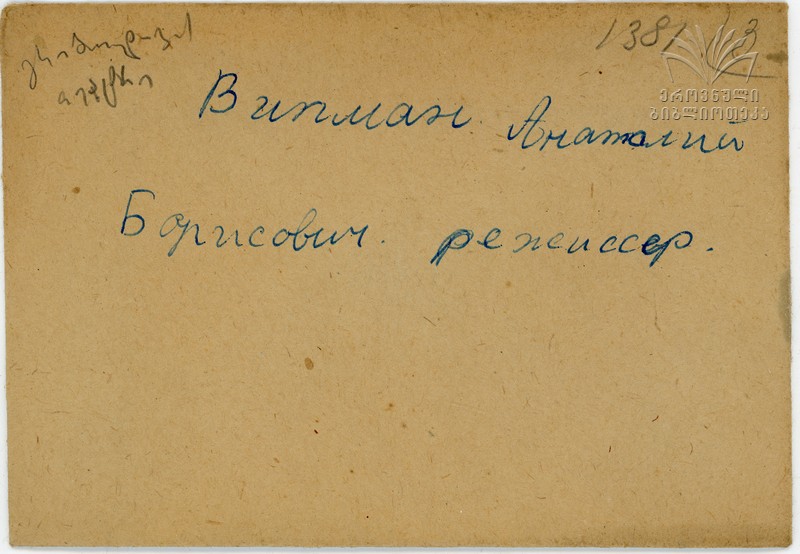 1381/3
ეროვნული
ბიბლიოთეკა
Випман Анатолий
Борисович. режиссер.